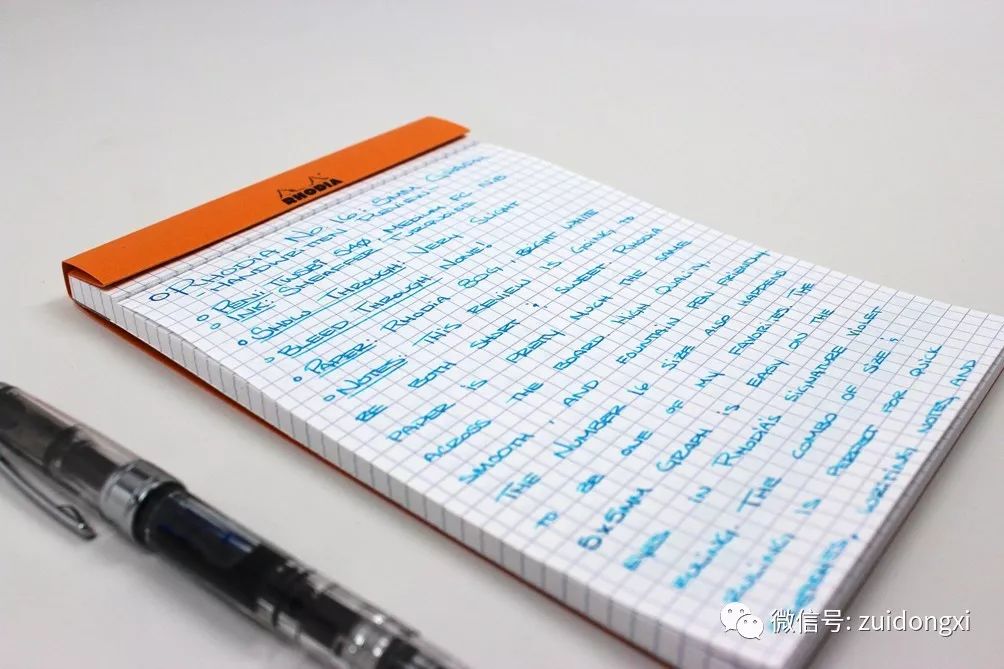 RHODIA
RHODIA No 16: 5MM GRAPH
- HANDWRITTEN REVIEW -
PEN: TWSBI 540, MEDIUM
INK: SHEAFFER TURQUOISE
SHOW THROUGH: VERY SLIGHT
BLEED THROUGH: NONE!
PAPER: RHODIA 80G, BRIGHT WHITE
NOTES: THIS REVIEW IS GOING TO
BE BOTH SHORT & SWEET. RHODIA
PAPER IS PRETTY MUCH THE SAME
ACROSS THE BOARD. HIGH QUALITY,
SMOOTH, AND FOUNTAIN PEN FRIENDLY.
THE NUMBER 16 SIZE ALSO HAPPENS
TO BE ONE OF MY FAVORITES. THE
5x5MM GRAPH IS EASY ON THE
EYES IN RHODIA'S SIGNATURE VIOLET
RULING. THE COMBO OF SIZE &
RULING IS PERFECT FOR QUICK
SKETCHES, WRITING NOTES, AND
微信号: zuidongxi